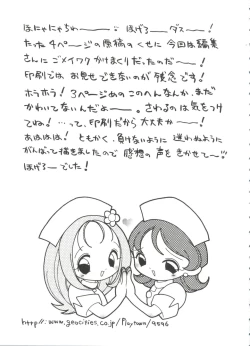 はにゃにゃちわ———；ほげろ——ダス—！
たった4ページの原稿のくせに今回は編集
さんにごメイワクかけまくりだったのだ———！
印刷では、お見せできないのが残念です！
ホラホラ！3ページめのこのへんなんか、まだ
かわいてないんだよ——。さわるのは気をつけ
てね！…って、印刷だから大丈夫か——！
あははは！ともかく、負けないように迷わぬように
がんばって描きましたので感想の声をきかせて——
ほげろ——でした！
http://www.geocities.co.jp/Playtown/9696